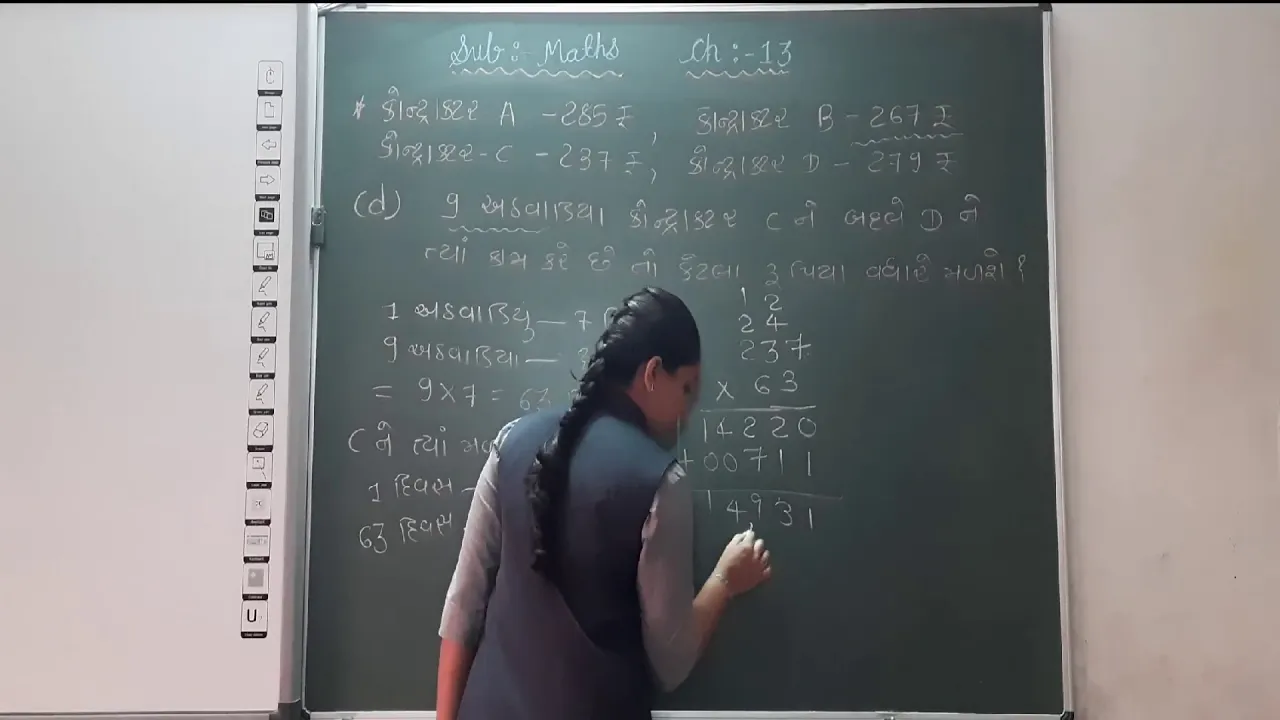 Sub:- Maths Ch:-13
* કોન્ટ્રાક્ટર A - 285 ₹, કોન્ટ્રાક્ટર B - 267 ₹
કોન્ટ્રાક્ટર - C - 237 ₹, કોન્ટ્રાક્ટર D - 279 ₹
(d) 9 અઠવાડિયા કોન્ટ્રાક્ટર C ને બદલે D ને
ત્યાં કામ કરે છે તો કેટલા રૂપિયા વધારે મળશે ?
1 અઠવાડિયું — 7
9 અઠવાડિયા —
= 9 × 7 = 63
C ને ત્યાં
1 દિવસ -
63 દિવસ
1 2
2 4
2 3 7
× 6 3
1 4 2 2 0
+ 0 0 7 1 1
1 4 9 3 1
U